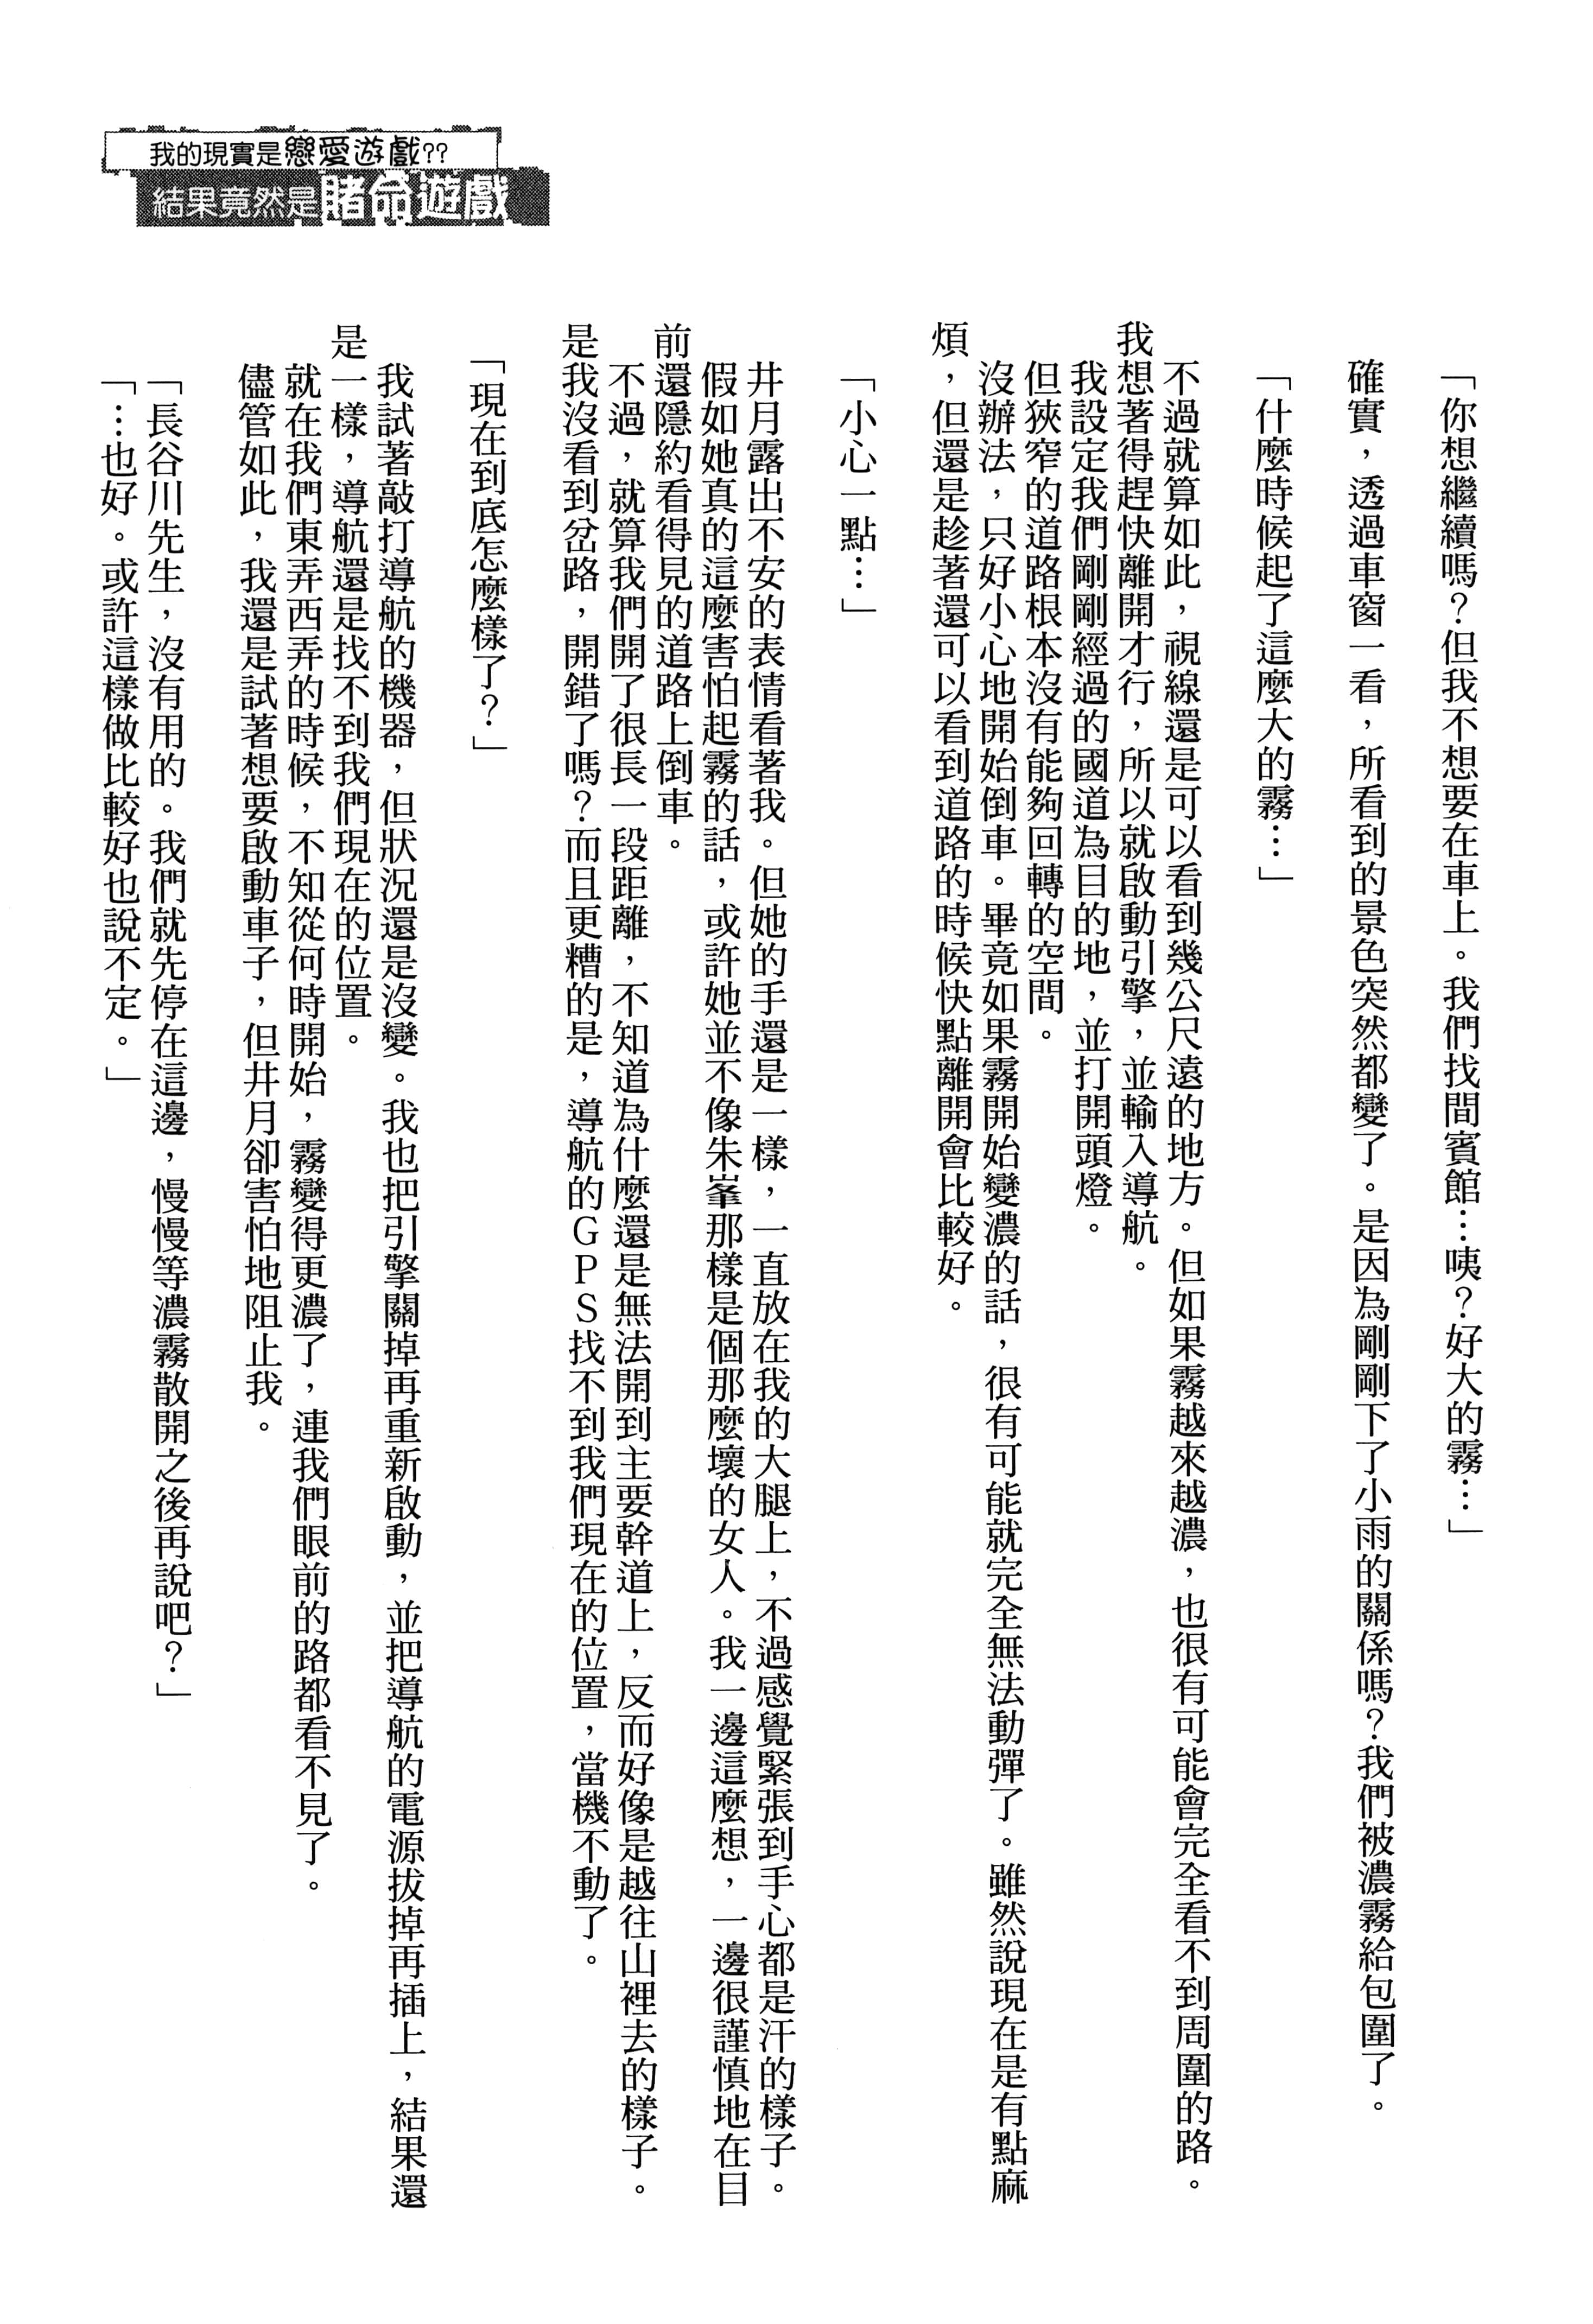 我的現實是戀愛遊戲??
結果竟然是賭命遊戲
「你想繼續嗎？但我不想要在車上。我們找間賓館…咦？好大的霧…」
確實，透過車窗一看，所看到的景色突然都變了。是因為剛剛下了小雨的關係嗎？我們被濃霧給包圍了。
「什麼時候起了這麼大的霧…」
不過就算如此，視線還是可以看到幾公尺遠的地方。但如果霧越來越濃，也很有可能會完全看不到周圍的路。
我想著得趕快離開才行，所以就啟動引擎，並輸入導航。
我設定我們剛剛經過的國道為目的地，並打開頭燈。
但狹窄的道路根本沒有能夠回轉的空間。
沒辦法，只好小心地開始倒車。畢竟如果霧開始變濃的話，很有可能就完全無法動彈了。雖然說現在是有點麻
煩，但還是趁著還可以看到道路的時候快點離開會比較好。
「小心一點…」
井月露出不安的表情看著我。但她的手還是一樣，一直放在我的大腿上，不過感覺緊張到手心都是汗的樣子。
假如她真的這麼害怕起霧的話，或許她並不像朱峯那樣是個那麼壞的女人。我一邊這麼想，一邊很謹慎地在目
前還隱約看得見的道路上倒車。
不過，就算我們開了很長一段距離，不知道為什麼還是無法開到主要幹道上，反而好像是越往山裡去的樣子。
是我沒看到岔路，開錯了嗎？而且更糟的是，導航的ＧＰＳ找不到我們現在的位置，當機不動了。
「現在到底怎麼樣了？」
我試著敲打導航的機器，但狀況還是沒變。我也把引擎關掉再重新啟動，並把導航的電源拔掉再插上，結果還
是一樣，導航還是找不到我們現在的位置。
就在我們東弄西弄的時候，不知從何時開始，霧變得更濃了，連我們眼前的路都看不見了。
儘管如此，我還是試著想要啟動車子，但井月卻害怕地阻止我。
「長谷川先生，沒有用的。我們就先停在這邊，慢慢等濃霧散開之後再說吧？」
「…也好。或許這樣做比較好也說不定。」